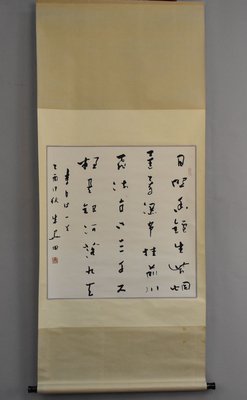 日照香鑪生紫烟
遥看瀑布挂前川
飛流直下三千尺
疑是銀河落九天
李白诗一首
乙酉秋 朱关田